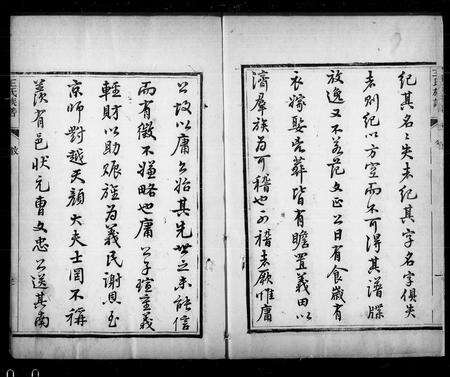 紀其名名失未紀其字名字俱失
者則紀以方空而不可得其譜牒
放逸又不若范文正公日有食歲有
衣嫁娶喪葬皆有贍置義田以
濟羣族為可稽也可稽者厥惟庸
公故以庸公始其先世之未能信
而有徵不嫌略也庸公子瑄重義
輕財以助賑旌為義民謝恩至
京師對越天顏大夫士罔不稱
羨有邑狀元曹文忠公送其南